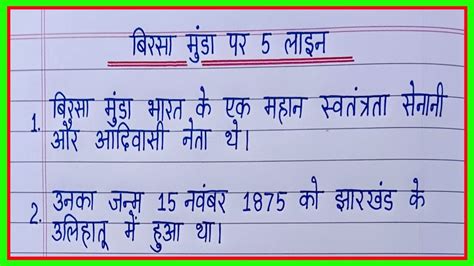 बिरसा मुंडा पर 5 लाइन
1. बिरसा मुंडा भारत के एक महान स्वतंत्रता सेनानी
और आदिवासी नेता थे।
2. उनका जन्म 15 नवंबर 1875 को झारखंड के
उलिहातू में हुआ था।